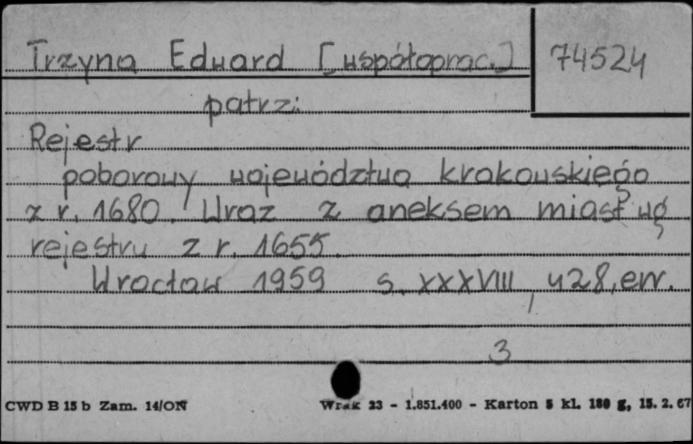 Trzyna Eduard [współoprac.] 74524
patrz:
Rejestr
poborowy województwa krakowskiego
z r. 1680. Wraz z aneksem miast wg
rejestru z r. 1655.
Wrocław 1959 s. XXXVIII, 428, err.
3
CWD B 15 b Zam. 14/ON Wrak 23 - 1.851.400 - Karton 5 kl. 180 g, 15. 2. 67